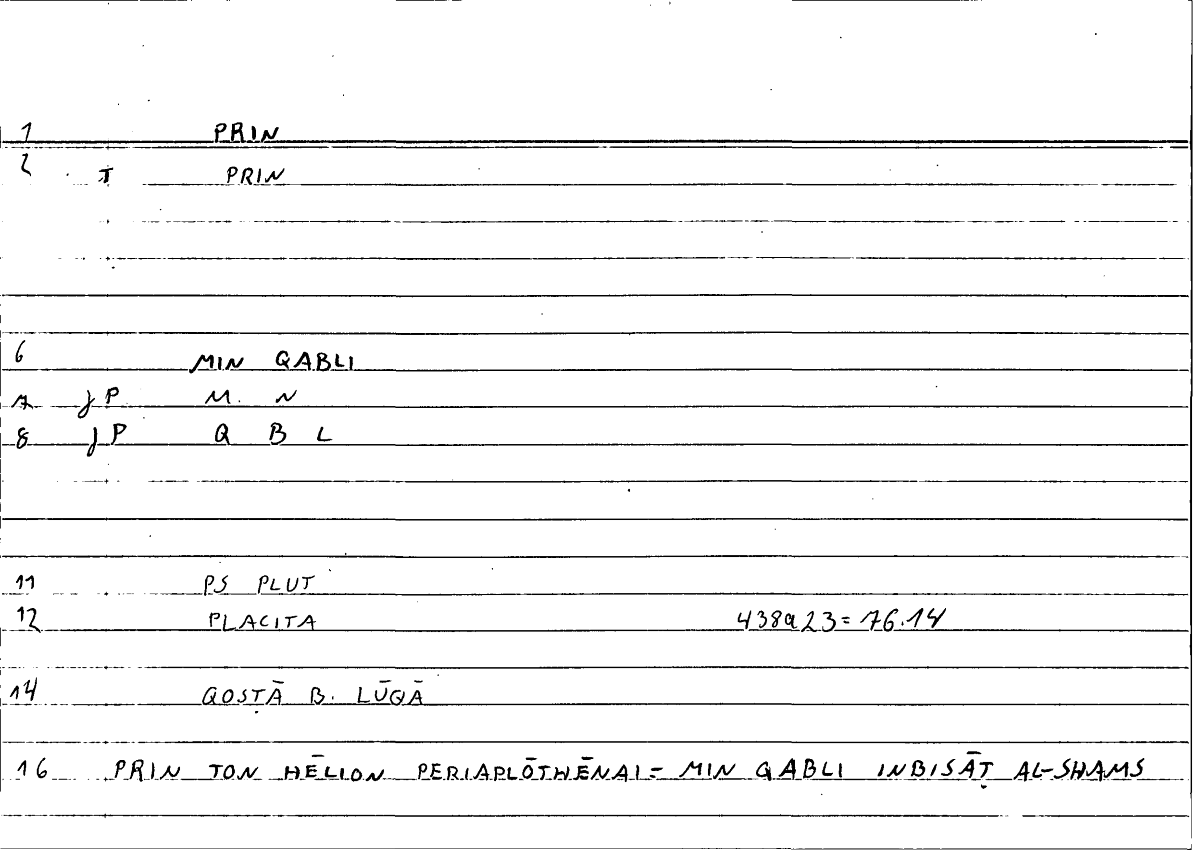 1 PRIN
2 I PRIN
6 MIN QABLI
7 JP M. N
8 JP Q B L
11 PS PLUT
12 PLACITA 438a23=76.14
14 QOSṬĀ B. LŪQĀ
16 PRIN TON HĒLION PERIAPLŌTHĒNAI = MIN QABLI INBISĀṬ AL-SHAMS